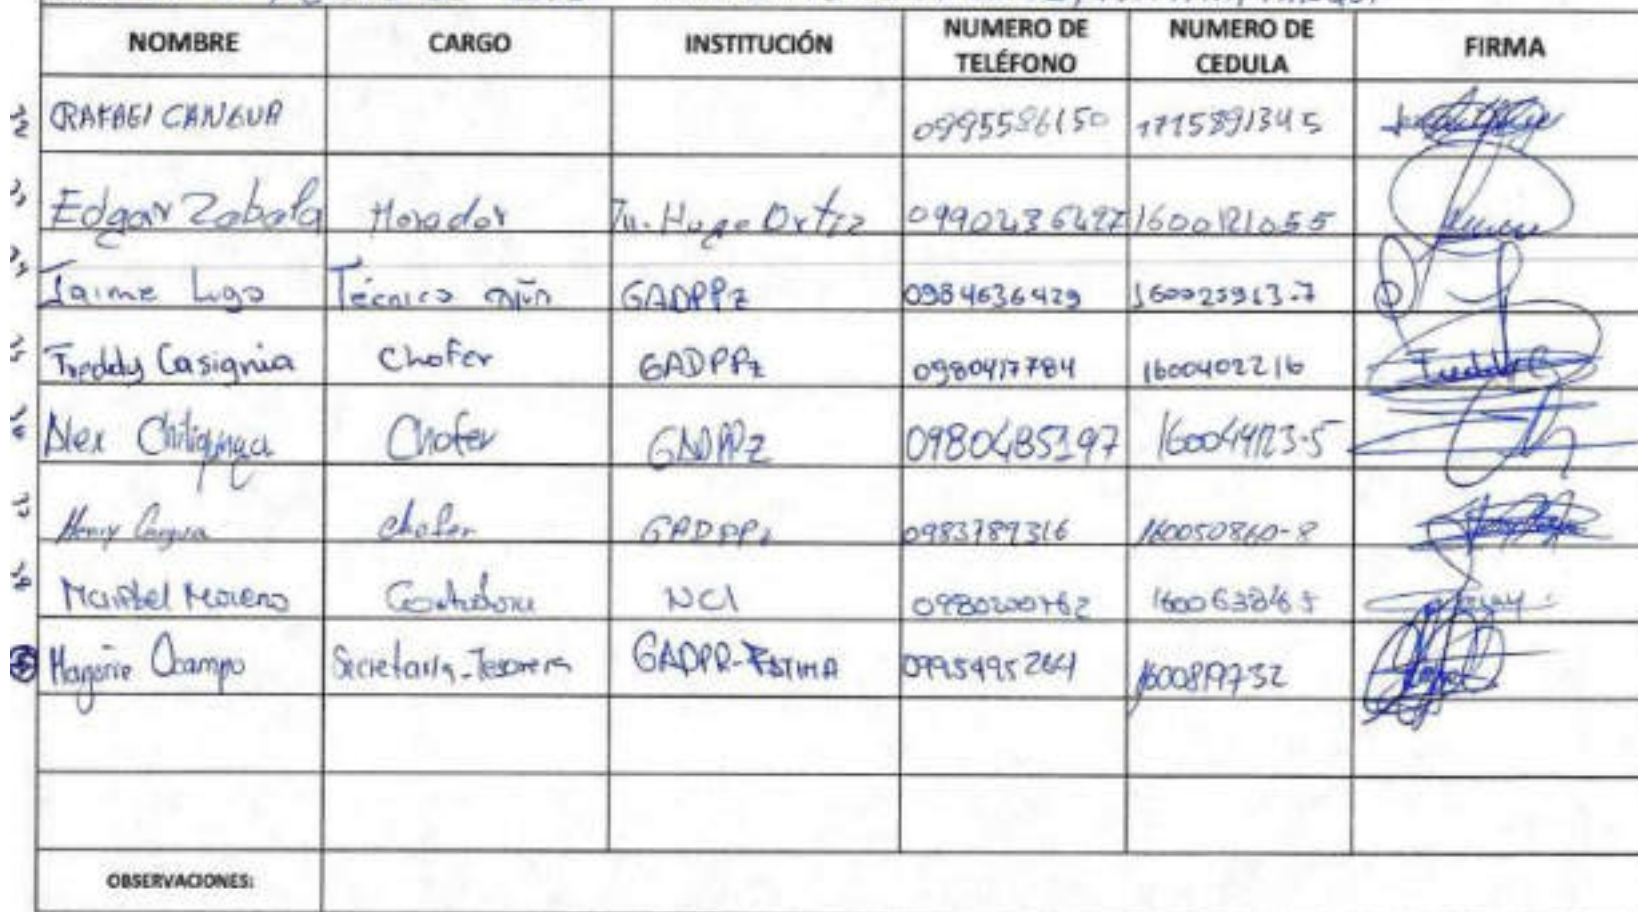 NOMBRE CARGO INSTITUCIÓN NUMERO DE TELÉFONO NUMERO DE CEDULA FIRMA
RAFAEl CANGUA 0995586150 1715891345
Edgar Zabala Morador Hugo Ortiz 1600121055
Jaime Lugo Técnico GADPPz 0984636429 160025913-7
Freddy Casignia Chofer GADPPz 0980417784 1600402216
Alex Chitiquinga Chofer GADPPz 0980485197 160049123-5
Henry Cangua chofer GADPPz 0983789316 160050860-8
Maribel Moreno NCI
Marjorie Ocampo Secretaria-Tesorera GADPR-FATIMA 0995495264
OBSERVACIONES: